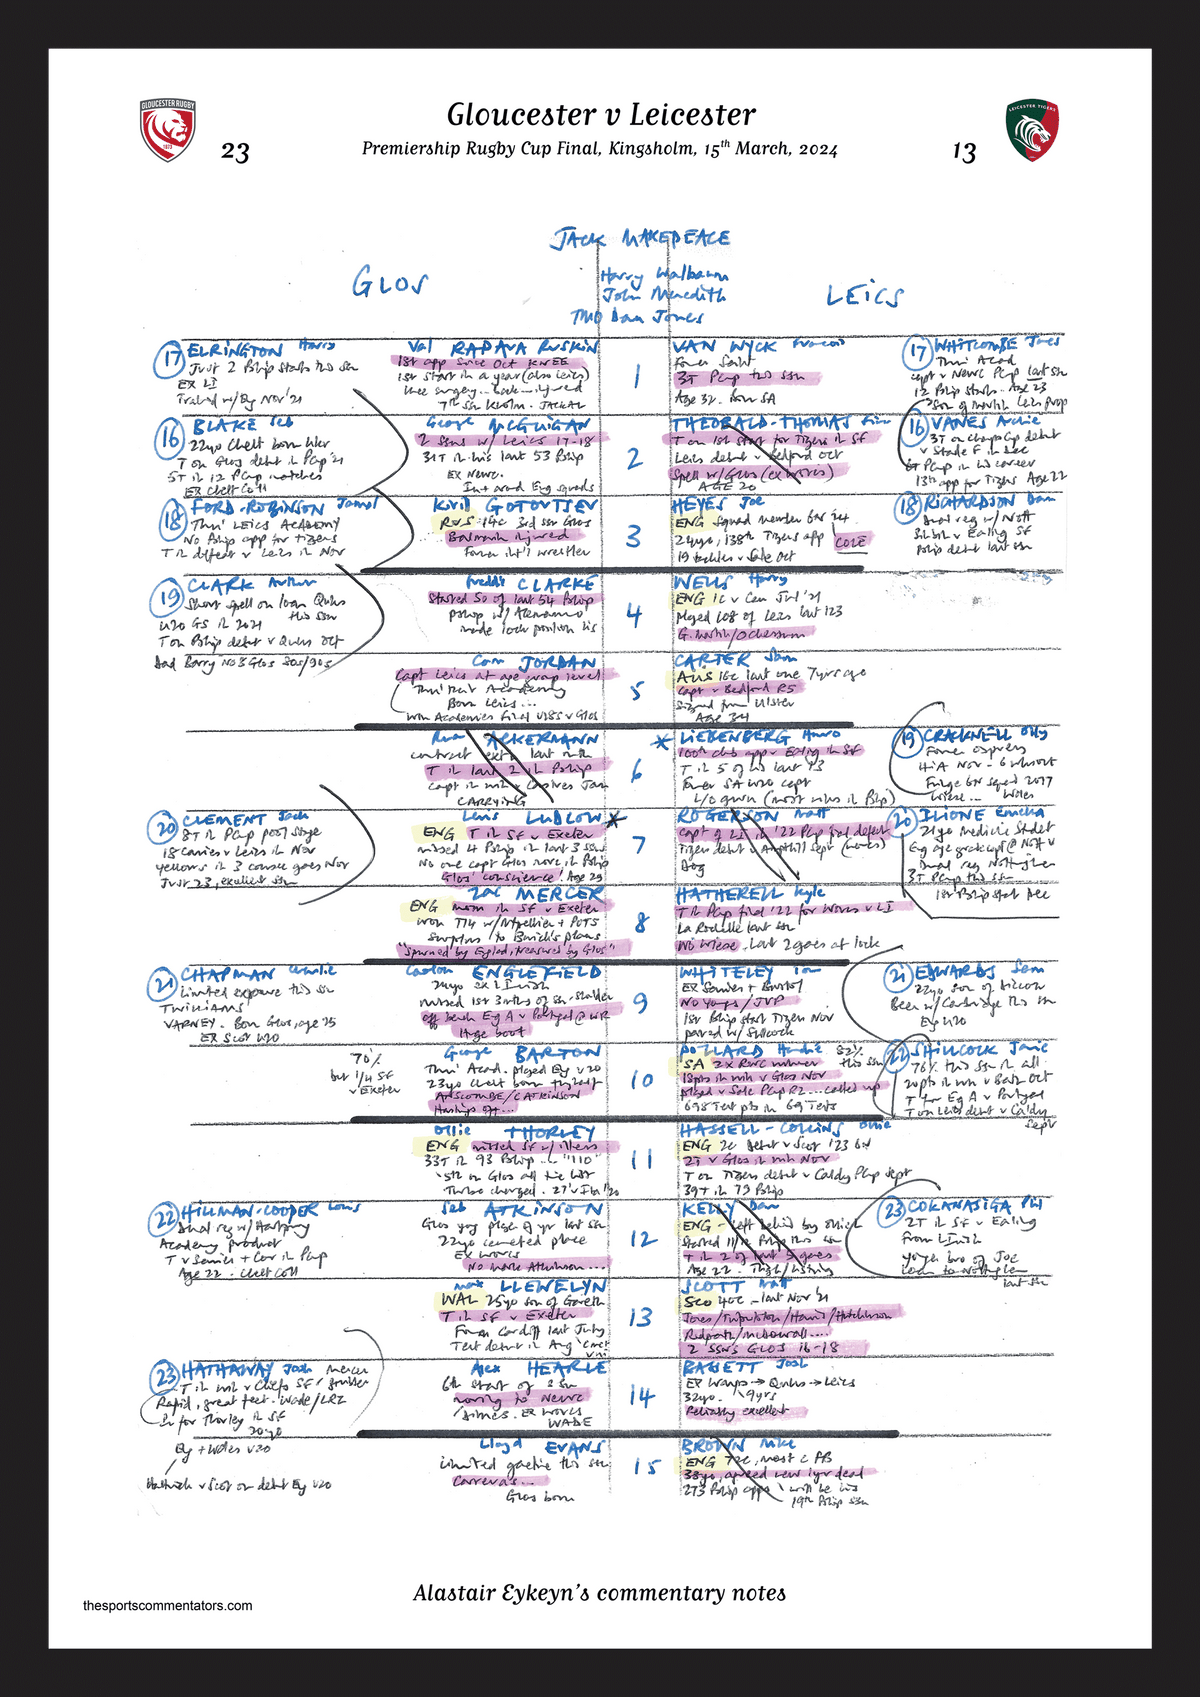 GLOUCESTER RUGBY
1873
LEICESTER TIGERS
Gloucester v Leicester
23
Premiership Rugby Cup Final, Kingsholm, 15th March, 2024
13
JACK MAKEPEACE
Harry Walbaum
John Meredith
TMO Dan Jones
GLOS
LEICS
17 ELRINGTON Harry
Just 2 Pship starts this ssn
EX LI
Trained w/ Eng Nov '21
Val RAPAVA RUSKIN
1st app since Oct KNEE
1st start in a year (also Leics)
knee surgery... back injured
7th ssn KHolm. JACKAL
1
VAN WYCK Francois
Former Saint
3T Pcup this ssn
Age 32. Born SA
17 WHITCOMBE James
Thru' Acad
capt v Newc Pcup last ssn
12 Pship starts. Age 23
Son of Martin, Leics prop
16 BLAKE Seb
22yo Chelt born hker
T on Glos debut in Pcup '21
5T in 12 Pcup matches
EX Chelt Coll
George McGUIGAN
2 ssns w/ Leics 17-18
31T in his last 53 Pship
EX Newc.
In + around Eng squads
2
THEOBALD-THOMAS Finn
T on 1st start for Tigers in SF
Leics debut v Bedford Oct
Spell w/ Glos (ex Worcs)
AGE 20
16 VANES Archie
3T on Champs Cup debut
v Stade F in Dec
6T Pcup in his career
13th app for Tigers Age 22
18 FORD-ROBINSON Jamal
Thru' LEICS ACADEMY
No Pship app for Tigers
T in defeat v Leics in Nov
Kirill GOTOVTSEV
RUS 14c 3rd ssn Glos
Balmain injured
Former int'l wrestler
3
HEYES Joe
ENG Squad member 6N '24
24yo, 138th Tigers app
COLE
19 tackles v Sale Oct
18 RICHARDSON Dan
Dual reg w/ Nott
Sub v Ealing SF
Pship debut last ssn
19 CLARK Arthur
Short spell on loan Quins
this ssn
U20 GS in 2021
T on Pship debut v Quins Oct
Dad Barry No 8 Glos 80s/90s
Freddie CLARKE
Started 50 of last 54 Pship
Pship w/ Alemanno
made lock position his
4
WELLS Harry
ENG 1c v Can Jul '21
Played 108 of Leics last 123
G. Martin/Ochessum
Cam JORDAN
Capt Leics at age group level
Thru' their Academy
Born Leics...
Won Academies Final U18s v Glos
5
CARTER Sam
AUS 16c last one 7yrs ago
Capt v Bedford R5
Signed from Ulster
Age 34
Ruan ACKERMANN
contract ext'n last mth
T in last 2 in Pship
Capt in
CARRYING
6
LIEBENBERG Hanro
100th club app v Ealing in SF
T in 5 of his last 13
Former SA U20 capt
L/O gwin (most wins in Pship)
19 CRACKNELL Olly
Former Osprey
HIA Nov - 6 wks out
Fringe 6N squad 2017
Wiese... Wales
20 CLEMENT Jack
8T in Pcup pool stage
18 carries v Leics in Nov
Yellows in 3 consec games Nov
Just 23, excellent ssn
Lewis LUDLOW
ENG T in SF v Exeter
missed 4 Pship in last 3 ssns
No one capt Glos more in Pship
Glos' 'conscience' Age 29
7
ROGERSON Matt
Capt of LI in '22 Pcup final defeat
Tigers debut v Ampthill Sept (
Dog
20 ILIONE Emeka
21yo Medicine Student
Eng age grade capt @ Nott U
Dual reg Nottingham
3T Pcup this ssn
1st Pship start Dec
Zac MERCER
ENG mom in SF v Exeter
won T14 w/ Montpellier + POTS
surplus to Borthwick's plans
"Spurned by England, treasured by Glos"
8
HATHERELL Kyle
T in Pcup final '22 for Worcs v LI
La Rochelle last ssn
No Wiese. Last 2 games at lock
21 CHAPMAN Charlie
Limited exposure this ssn
TWILLIAMS
VARNEY. Born Glos, age 25
EX Scot U20
Caolan ENGLEFIELD
24yo ex L Irish
missed 1st 3 mths of ssn - shoulder
off bench Eng A v Portugal @ WR
Huge boot
9
WHITELEY Tom
EX Saracens + Bristol
No Youngs / JVP
1st Pship start Tigers Nov
paired w/ Shillcock
21 EDWARDS Sam
22yo son of Dillon
Been w/ Cambridge this ssn
Eng U20
70%
but 1/4 SF
v Exeter
George BARTON
Thru' Acad. played Eng U20
23yo Chelt born
ANSCOMBE / C ATKINSON
Hastings off...
10
POLLARD Handre 82%
this ssn
SA 2X RWC winner
18pts in win v Glos Nov
Played v Sale Pcup R2... called up
698 Test pts in 69 Tests
22 SHILLCOCK Jamie
76% this ssn in all
20pts in win v Bath Oct
T for Eng A v Portugal
T on Leics debut v Caldy
Sept
Ollie THORLEY
ENG missed SF w/ illness
33T in 93 Pship ... "110"
5th on Glos all time list
Turbo charged. 27
11
HASSELL-COLLINS Ollie
ENG 2c debut v Scot '23 6N
2T v Glos in win Nov
T on Tigers debut v Caldy Pcup Sept
39T in 73 Pship
22 HILLMAN-COOPER Louis
Dual reg w/ Hartpury
Academy product
T v Saracens + Cov in Pcup
Age 22. Chelt Coll
Seb ATKINSON
Glos yng player of yr last ssn
22yo cemented place
EX Worcs
No Mark Atkinson...
12
KELLY Dan
ENG - left behind by
Started 11/12 Pship this ssn
T in 2 of last 3 games
Age 22. Thigh/
23 COKANASIGA Phil
2T in SF v Ealing
From L Irish
Younger bro of Joe
Loan to Nottingham
last ssn
Max LLEWELLYN
WAL 25yo son of Gareth
T in SF v Exeter
Former Cardiff last July
Test debut in Aug
13
SCOTT Matt
SCO 40c - last Nov '21
Jones/Tuipulotu/Harris/Hutchinson
Redpath/McDowall....
2 ssns GLOS 16-18
23 HATHAWAY Josh
T in win v Chiefs SF
Rapid, great feet. Wade/LRZ
In for Thorley in SF
20yo
Eng + Wales U20
Hat-trick v Scot on debut Eng U20
Alex HEARLE
6th start of ssn
moving to Newc
EX Worcs
WADE
14
BASSETT Josh
EX Wasps → Quins → Leics
32yo. 9yrs
Reliably excellent
Lloyd EVANS
Limited gametime this ssn
Carreras...
Glos born
15
BROWN Mike
ENG 72c, most c FB
38yo, agreed new 1yr deal
273 Pship apps
will be his
19th Pship ssn
Alastair Eykeyn's commentary notes
thesportscommentators.com